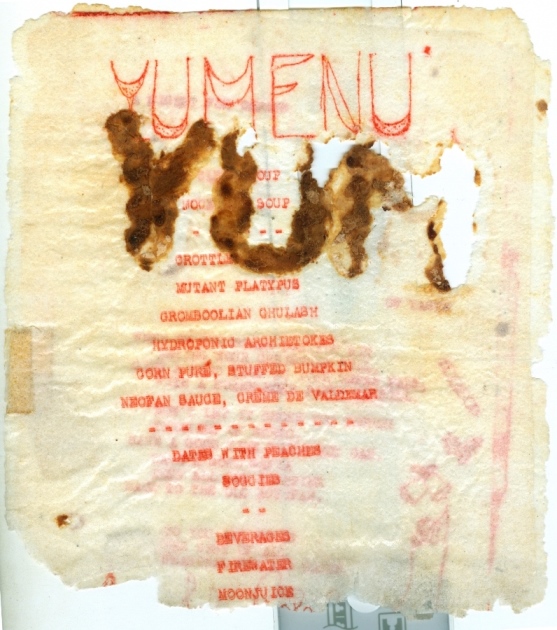 YUMENU
YUM
SOUP
GROTTLE
MUTANT PLATYPUS
GROMBOOLIAN GHULASH
HYDROPONIC ARCHIETOKES
CORN PURÉ, STUFFED BUMPKIN
NEOPAN SAUCE, CRÊME DE VALDEMAR
DATES WITH PEACHES
SOGGIES
BEVERAGES
FIREWATER
MOONJUICE